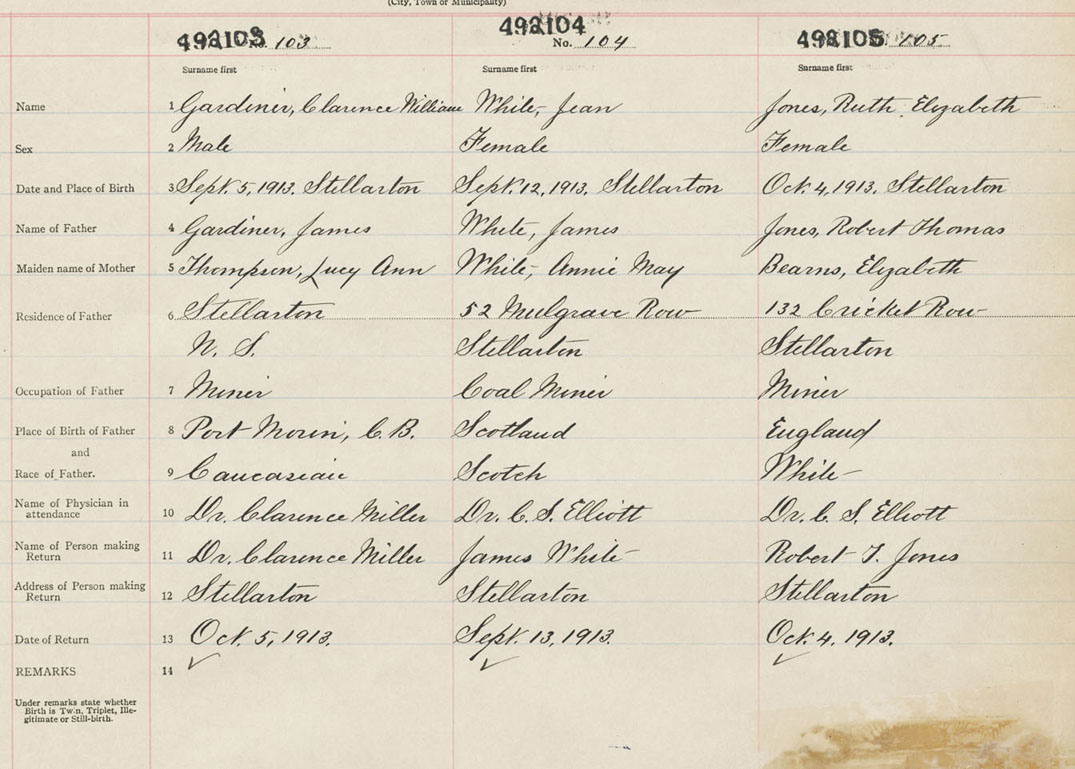 (City, Town or Municipality)
492103 No. 103 492104 No. 104 492105 105
Surname first Surname first Surname first
Name 1 Gardiner, Clarence William White, Jean Jones, Ruth Elizabeth
Sex 2 Male Female Female
Date and Place of Birth 3 Sept. 5, 1913, Stellarton Sept. 12, 1913, Stellarton Oct. 4, 1913, Stellarton
Name of Father 4 Gardiner, James White, James Jones, Robert Thomas
Maiden name of Mother 5 Thompson, Lucy Ann White, Annie May Bearns, Elizabeth
Residence of Father 6 Stellarton 52 Mulgrave Row 132 Cricket Row
N. S. Stellarton Stellarton
Occupation of Father 7 Miner Coal Miner Miner
Place of Birth of Father 8 Port Morien, C.B. Scotland England
and
Race of Father. 9 Caucasian Scotch White
Name of Physician in
attendance 10 Dr. Clarence Miller Dr. C. S. Elliott Dr. C. S. Elliott
Name of Person making
Return 11 Dr. Clarence Miller James White Robert T. Jones
Address of Person making
Return 12 Stellarton Stellarton Stellarton
Date of Return 13 Oct. 5, 1913. Sept. 13, 1913. Oct. 4. 1913.
REMARKS 14
Under remarks state whether
Birth is Twin, Triplet, Ille-
gitimate or Still-birth.